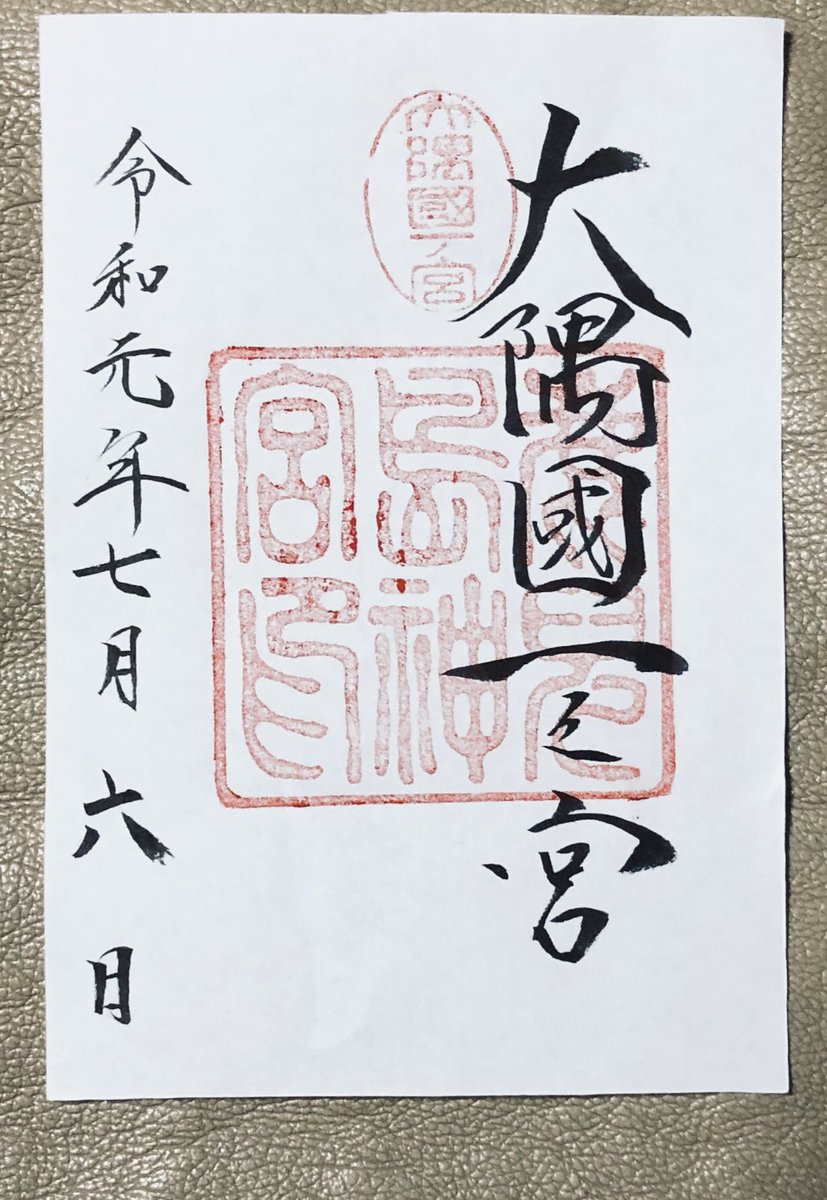 大隅國一之宮
大隅國一宮
鹿兒
島神
宮印
令和元年七月六日